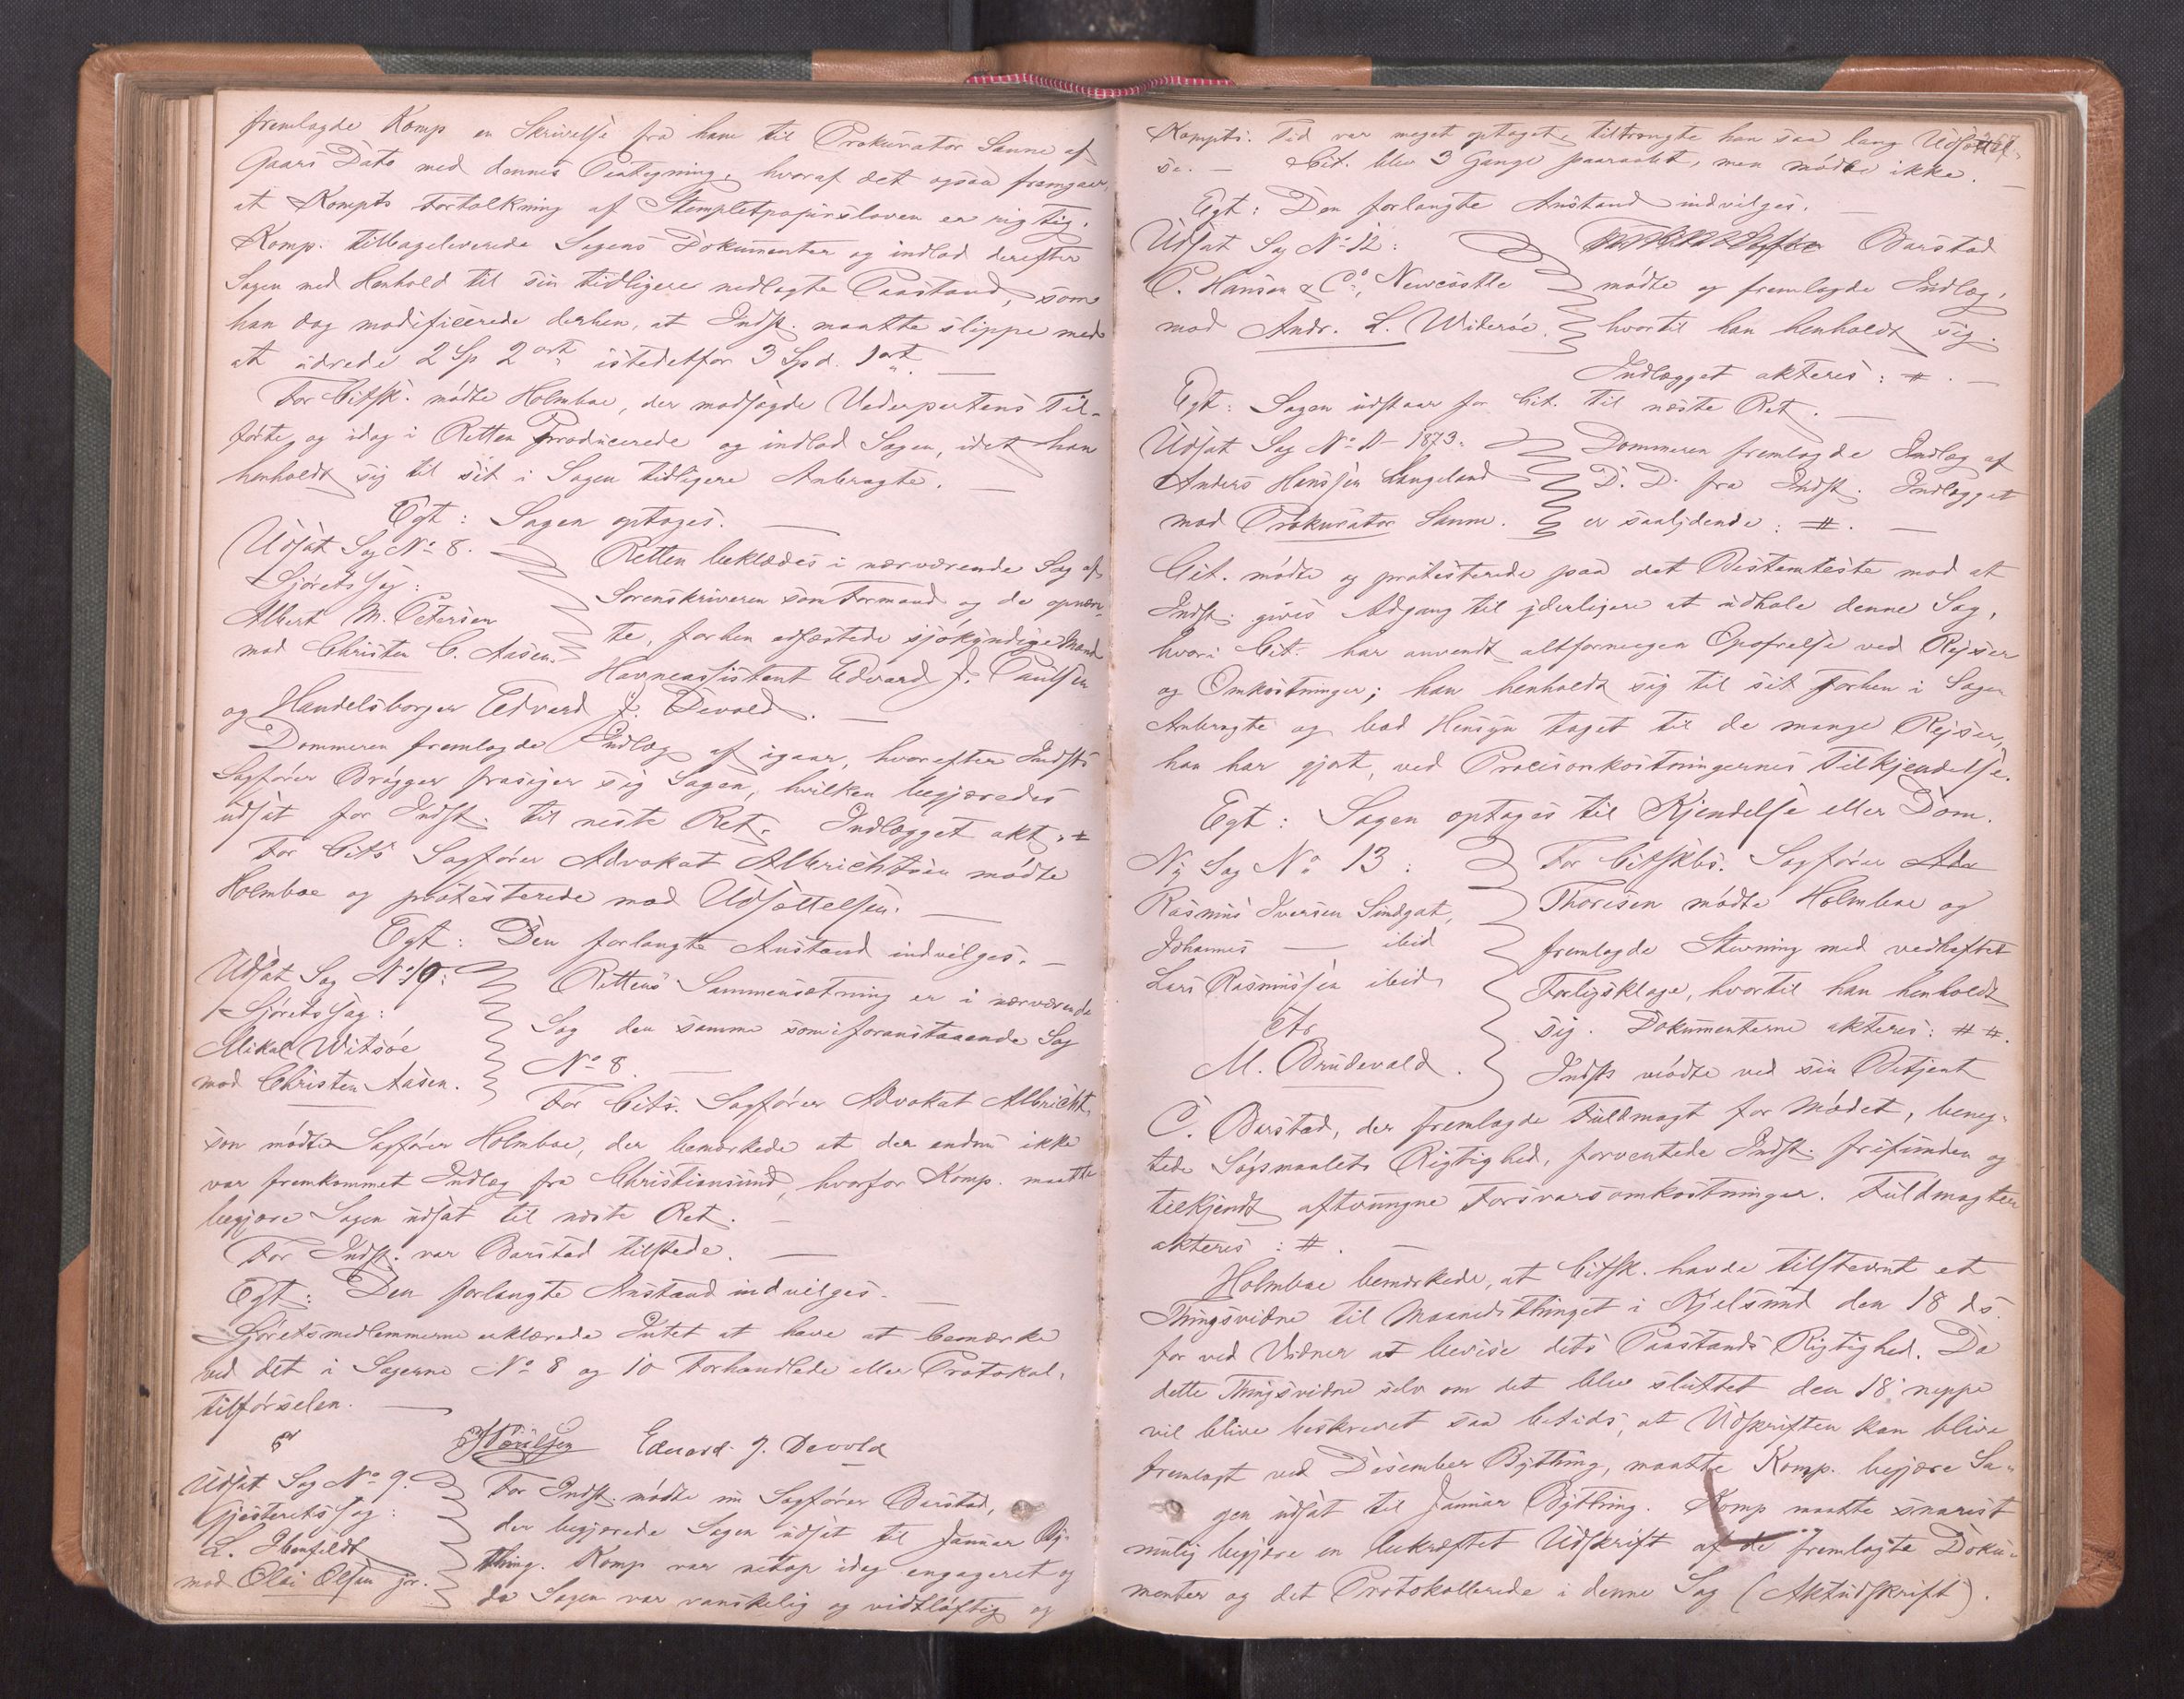 fremlagde Komp en Skrivelse fra ham til Prokurator Sanne af
Gaars Dato med dennes Paategning, hvoraf det ogsaa fremgaar,
at Kompts Fortolkning af Stempletpapirsloven er rigtig.
Komp. tilbageleverede Sagens Dokumenter og indlod derefter
Sagen med Henhold til sin tidligere nedlagte Paastand, som
han dog modificerede derhen, at Indst. maatte slippe med
at udrede 2 Sp 2 ort istedetfor 3 Spd. 1 ort. —
For Citsk. mødte Holmboe, der modsagde Vederpartens Til-
førte, og idag i Retten Producerede og indlod Sagen, idet han
henholdt sig til sit i Sagen tidligere Anbragte. —
Egt: Sagen optages. —
Udsat Sag No 8.
Sjøretssag:
Albert M. Petersen
mod Christen C. Aasen.
Retten beklædes i nærværende Sag af
Sorenskriveren som Formand og de opnævn-
te, forhen edfæstede sjøkyndige Mænd
Havneassistent Edvard J. Paulsen
og Handelsborger Edvard J. Devold. —
Dommeren fremlagde Indlæg af igaar, hvorefter Indsts
Sagfører Brygger frasiger sig Sagen, hvilken begjæredes
udsat for Indst. til neste Ret. Indlægget akt. #
For Cits Sagfører Advokat Albrichtsen mødte
Holmboe og protesterede mod Udsættelsen. —
Egt: Den forlangte Anstand indvilges. —
Udsat Sag No 10:
Sjøretssag:
Mikal Witsøe
mod Christen Aasen.
Rettens Sammensætning er i nærværende
Sag den samme som i foranstaaende Sag
No 8. —
For Cits. Sagfører Advokat Albricht-
sen mødte Sagfører Holmboe, der bemærkede at der endnu ikke
var fremkommet Indlæg fra Christiansund, hvorfor Komp. maatte
begjære Sagen udsat til næste Ret. —
For Indst. var Barstad tilstede. —
Egt: Den forlangte Anstand indvilges. —
Sjøretsmedlemmerne erklærede Intet at have at bemærke
ved det i Sagerne No 8 og 10 Forhandlede eller Protokol-
tilførselen. —
Paulsen Edvard J. Devold
Udsat Sag No 9.
Gjesteretssag:
L. Ibenfeldt
mod Olai Olsen jr.
For Indst. mødte nu Sagfører Barstad,
der begjærede Sagen udsat til Januar By-
thing. Komp var netop idag engageret og
da Sagen var vanskelig og vidtløftig og
Kompts. Tid var meget optaget, tiltrængte han saa lang Udsættel-
se. — Cit. blev 3 Gange paaraabt, men mødte ikke. —
Egt: Den forlangte Anstand indvilges. —
Udsat Sag No 12:
P. Hansen & Co, Newcastle
mod Andr. L. Widerøe.
Barstad
mødte og fremlagde Indlæg,
hvortil han henholdt sig.
Indlægget akteres: #. —
Egt: Sagen udstaar for Cit. til næste Ret. —
Udsat Sag No 11 1873:
Anders Hanssen Langeland
mod Prokurator Sanne.
Dommeren fremlagde Indlæg af
D. D. fra Indst. Indlægget
er saalydende: #. —
Cit. mødte og protesterede paa det Bestemteste mod at
Indst. gives Adgang til yderligere at udhale denne Sag,
hvori Cit. har anvendt altformegen Opofrelse ved Rejser
og Omkostninger; han henholdt sig til sit forhen i Sagen
Anbragte og bad Hensyn taget til de mange Rejser,
han har gjort, ved Procesomkostningernes Tilkjendelse.
Egt: Sagen optages til Kjendelse eller Dom.
Ny Sag No 13:
Rasmus Iversen Sindgat,
Johannes — ibid
Lars Rasmussen ibid
Ctr
M. Brudevald.
For Citskbs. Sagfører Adv
Thoresen mødte Holmboe og
fremlagde Stevning med vedheftet
Forligsklage, hvortil han henholdt
sig. Dokumenterne akteres: # #.
Indst mødte ved sin Betjent
C. Barstad, der fremlagde Fuldmagt for Mødet, beneg-
tede Søgsmaalets Rigtighed, forventede Indst. frifunden og
tilkjendt aftvungne Forsvarsomkostninger. Fuldmagten
akteres: #. —
Holmboe bemærkede, at Citsk. havde tilstevnt et
Thingsvidne til Maanedsthinget i Kjelsund den 18 ds
for ved Vidner at bevise dets Paastands Rigtighed. Da
dette Thingsvidne selv om det blev sluttet den 18. neppe
vil blive beskrevet saa betids, at Udskriften kan blive
fremlagt ved Desember Bything, maatte Komp. begjære Sa-
gen udsat til Januar Bything. Komp maatte snarest
mulig begjære en bekræftet Udskrift af de fremlagte Doku-
menter og det Protokollerede i denne Sag (Aktudskrift).